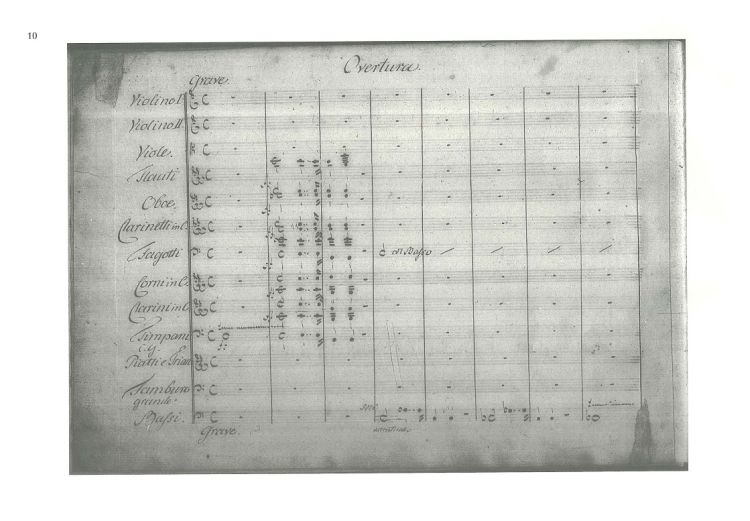 10
Overtura.
Grave.
Violino I.
Violino II.
Viole.
Flauti
Oboe.
Clarinetti in C.
Fagotti
con Basso
Corni in C.
Clarini in C.
Timpani
C.G.
Piatti e Trian
Tamburo
grande.
Bassi.
Grave